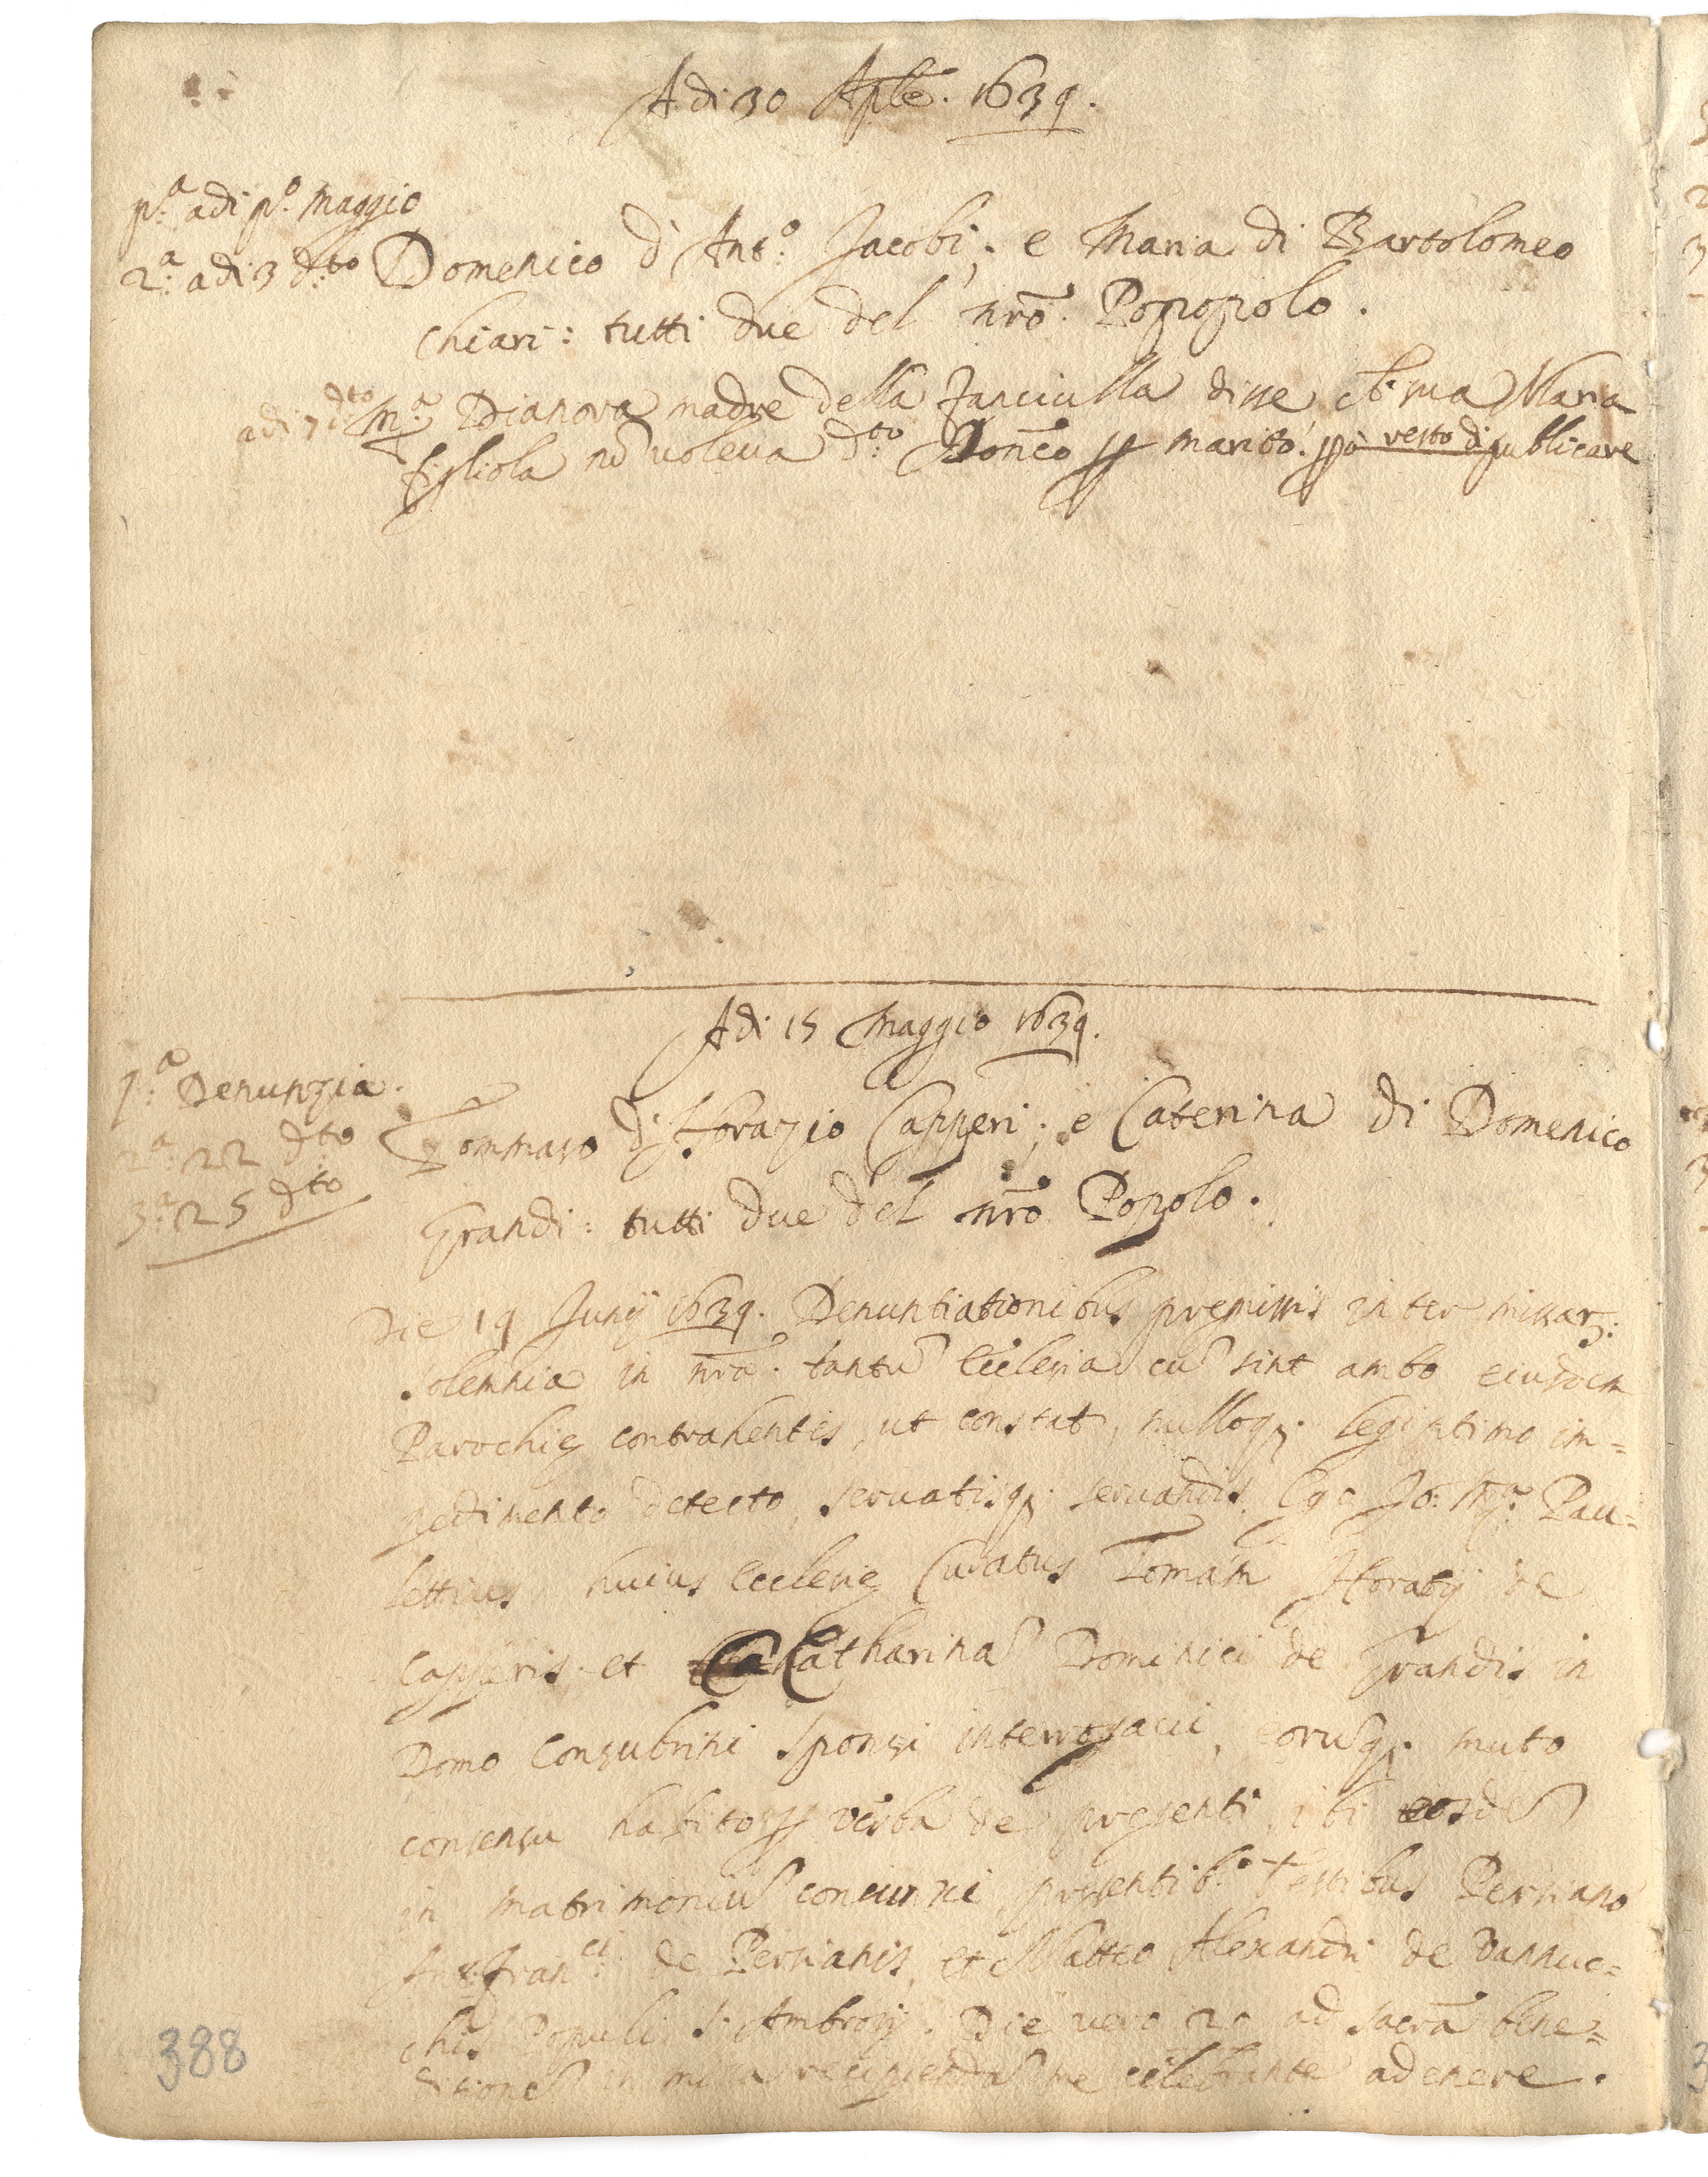 Adi 30 Aple. 1639.
pa. adi po. Maggio
2a. adi 3 dto Domenico di Anto. Jacobi; e Maria di Bartolomeo
Chiari: tutti due del nro. Popopolo.
adi 7 dto Ma. Dianora madre della fanciulla disse che sua Maria
figliola no voleua dto. Domco p marito. però resto di publicare
Adi 15 Maggio 1639.
1a. Denunzia.
2a. 22 dto
3a. 25 dto
Tommaso di Horazio Capperi; e Caterina di Domenico
Grandi: tutti due del nro Popolo.
Die 19 Junij 1639. Denuntiationibus premissis inter missar:
solemnia in nra. tantu Ecclesia cu sint ambo eiusdem
Parochię contrahentes, ut constat, nulloq. legiptimo im=
pedimento detecto, seruatisq. seruandis, Ego Jo: Ma. Pau=
lettius huius Ecclesię Curatus Tomam Horatij de
Capperis et Catharina Dominici de Grandis in
Domo Consubrini Sponsi interrogaui, eoruq. muto
consensu habito p verba de presenti, ibi eosde
in matrimoniu coniunxi, presentib. Testibus Persiano
Francj. de Persianis, et Matteo Alexandri de Vannuc=
chis Populi S. Ambrosij. Die vero 20 ad sacra bene=
ditione in missa recipienda me celebrante adenere.
388